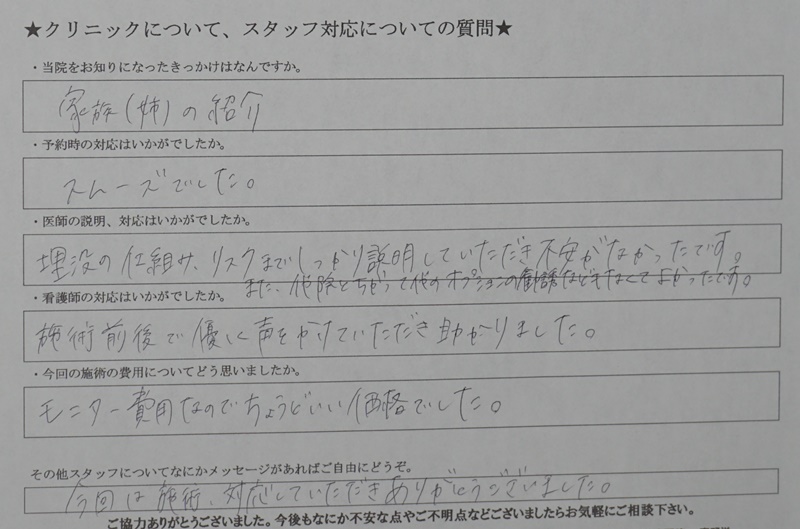 ★クリニックについて、スタッフ対応についての質問★
・当院をお知りになったきっかけはなんですか。
家族(姉)の紹介
・予約時の対応はいかがでしたか。
スムーズでした。
・医師の説明、対応はいかがでしたか。
埋没の仕組み、リスクまでしっかり説明していただき不安がなかったです。
また、他院とちがって他のオプションの勧誘などもなくてよかったです。
・看護師の対応はいかがでしたか。
施術前後で優しく声をかけていただき助かりました。
・今回の施術の費用についてどう思いましたか。
モニター費用なのでちょうどいい価格でした。
その他スタッフについてなにかメッセージがあればご自由にどうぞ。
今回は施術、対応していただきありがとうございました。
ご協力ありがとうございました。今後もなにか不安な点やご不明点などございましたらお気軽にご相談下さい。